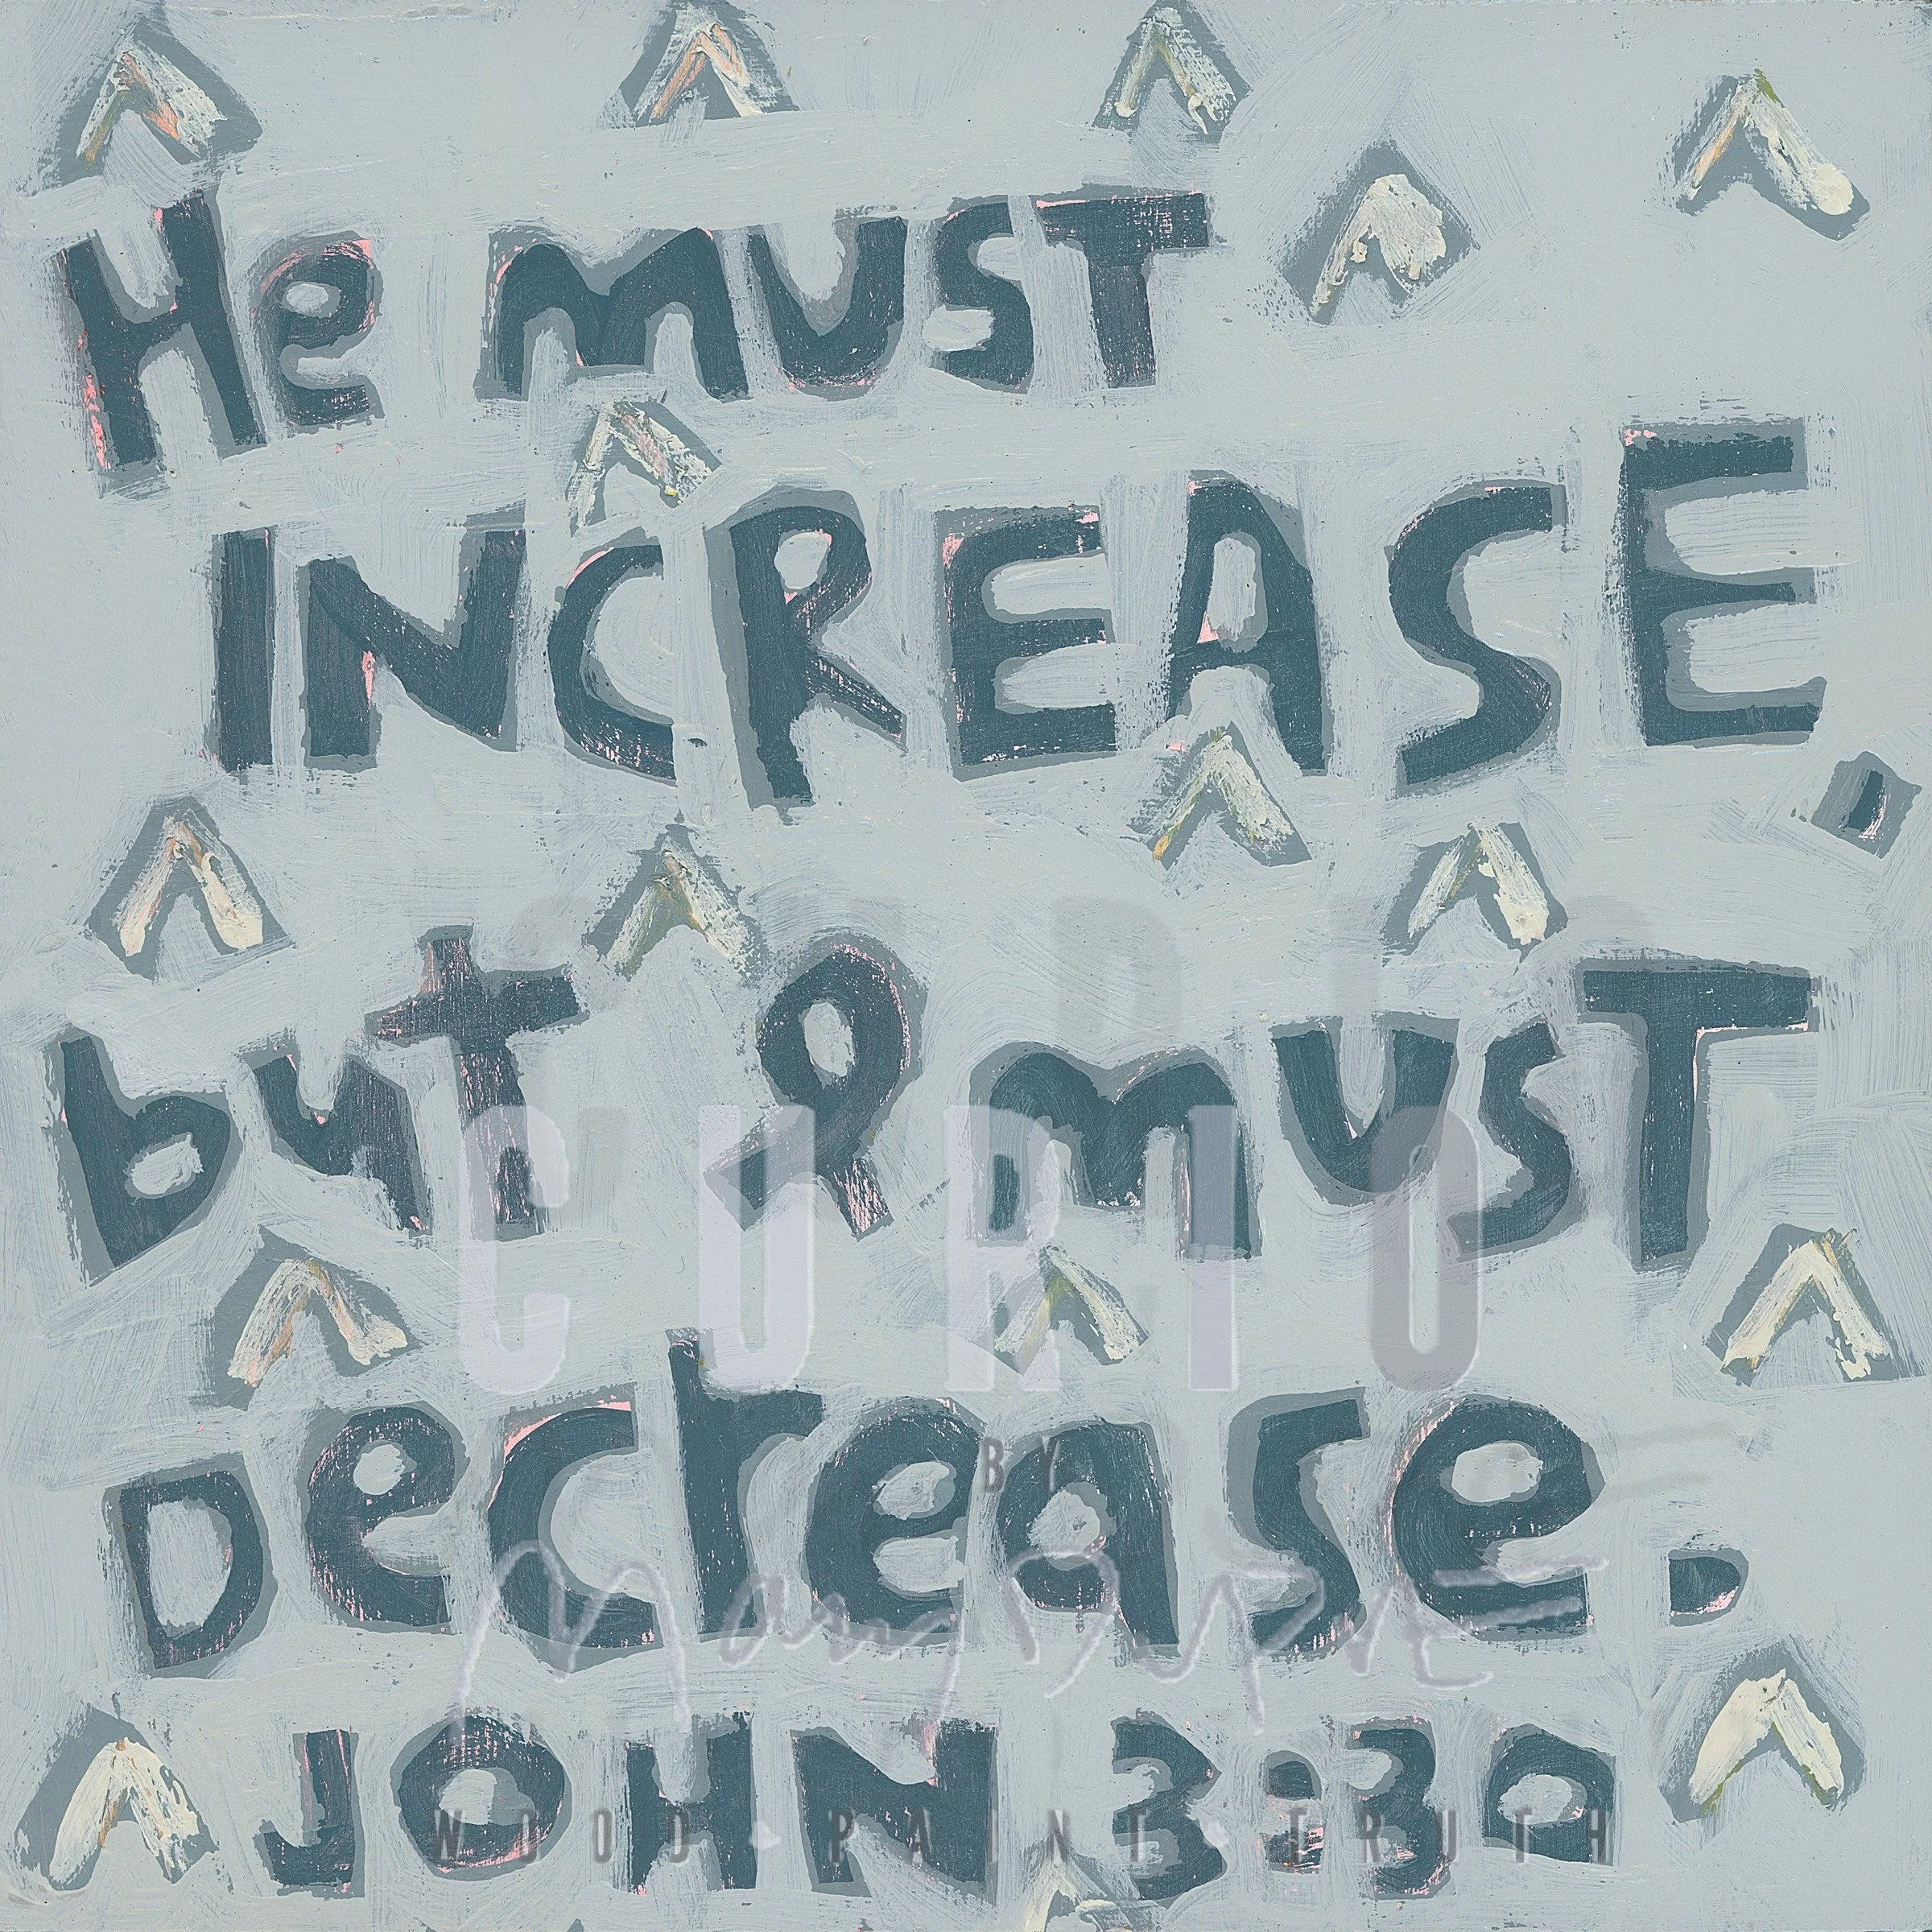 He MUST
INCREASE,
but I MUST
Decrease.
JOHN 3:30
CURIO
BY
WOOD PAINT TRUTH